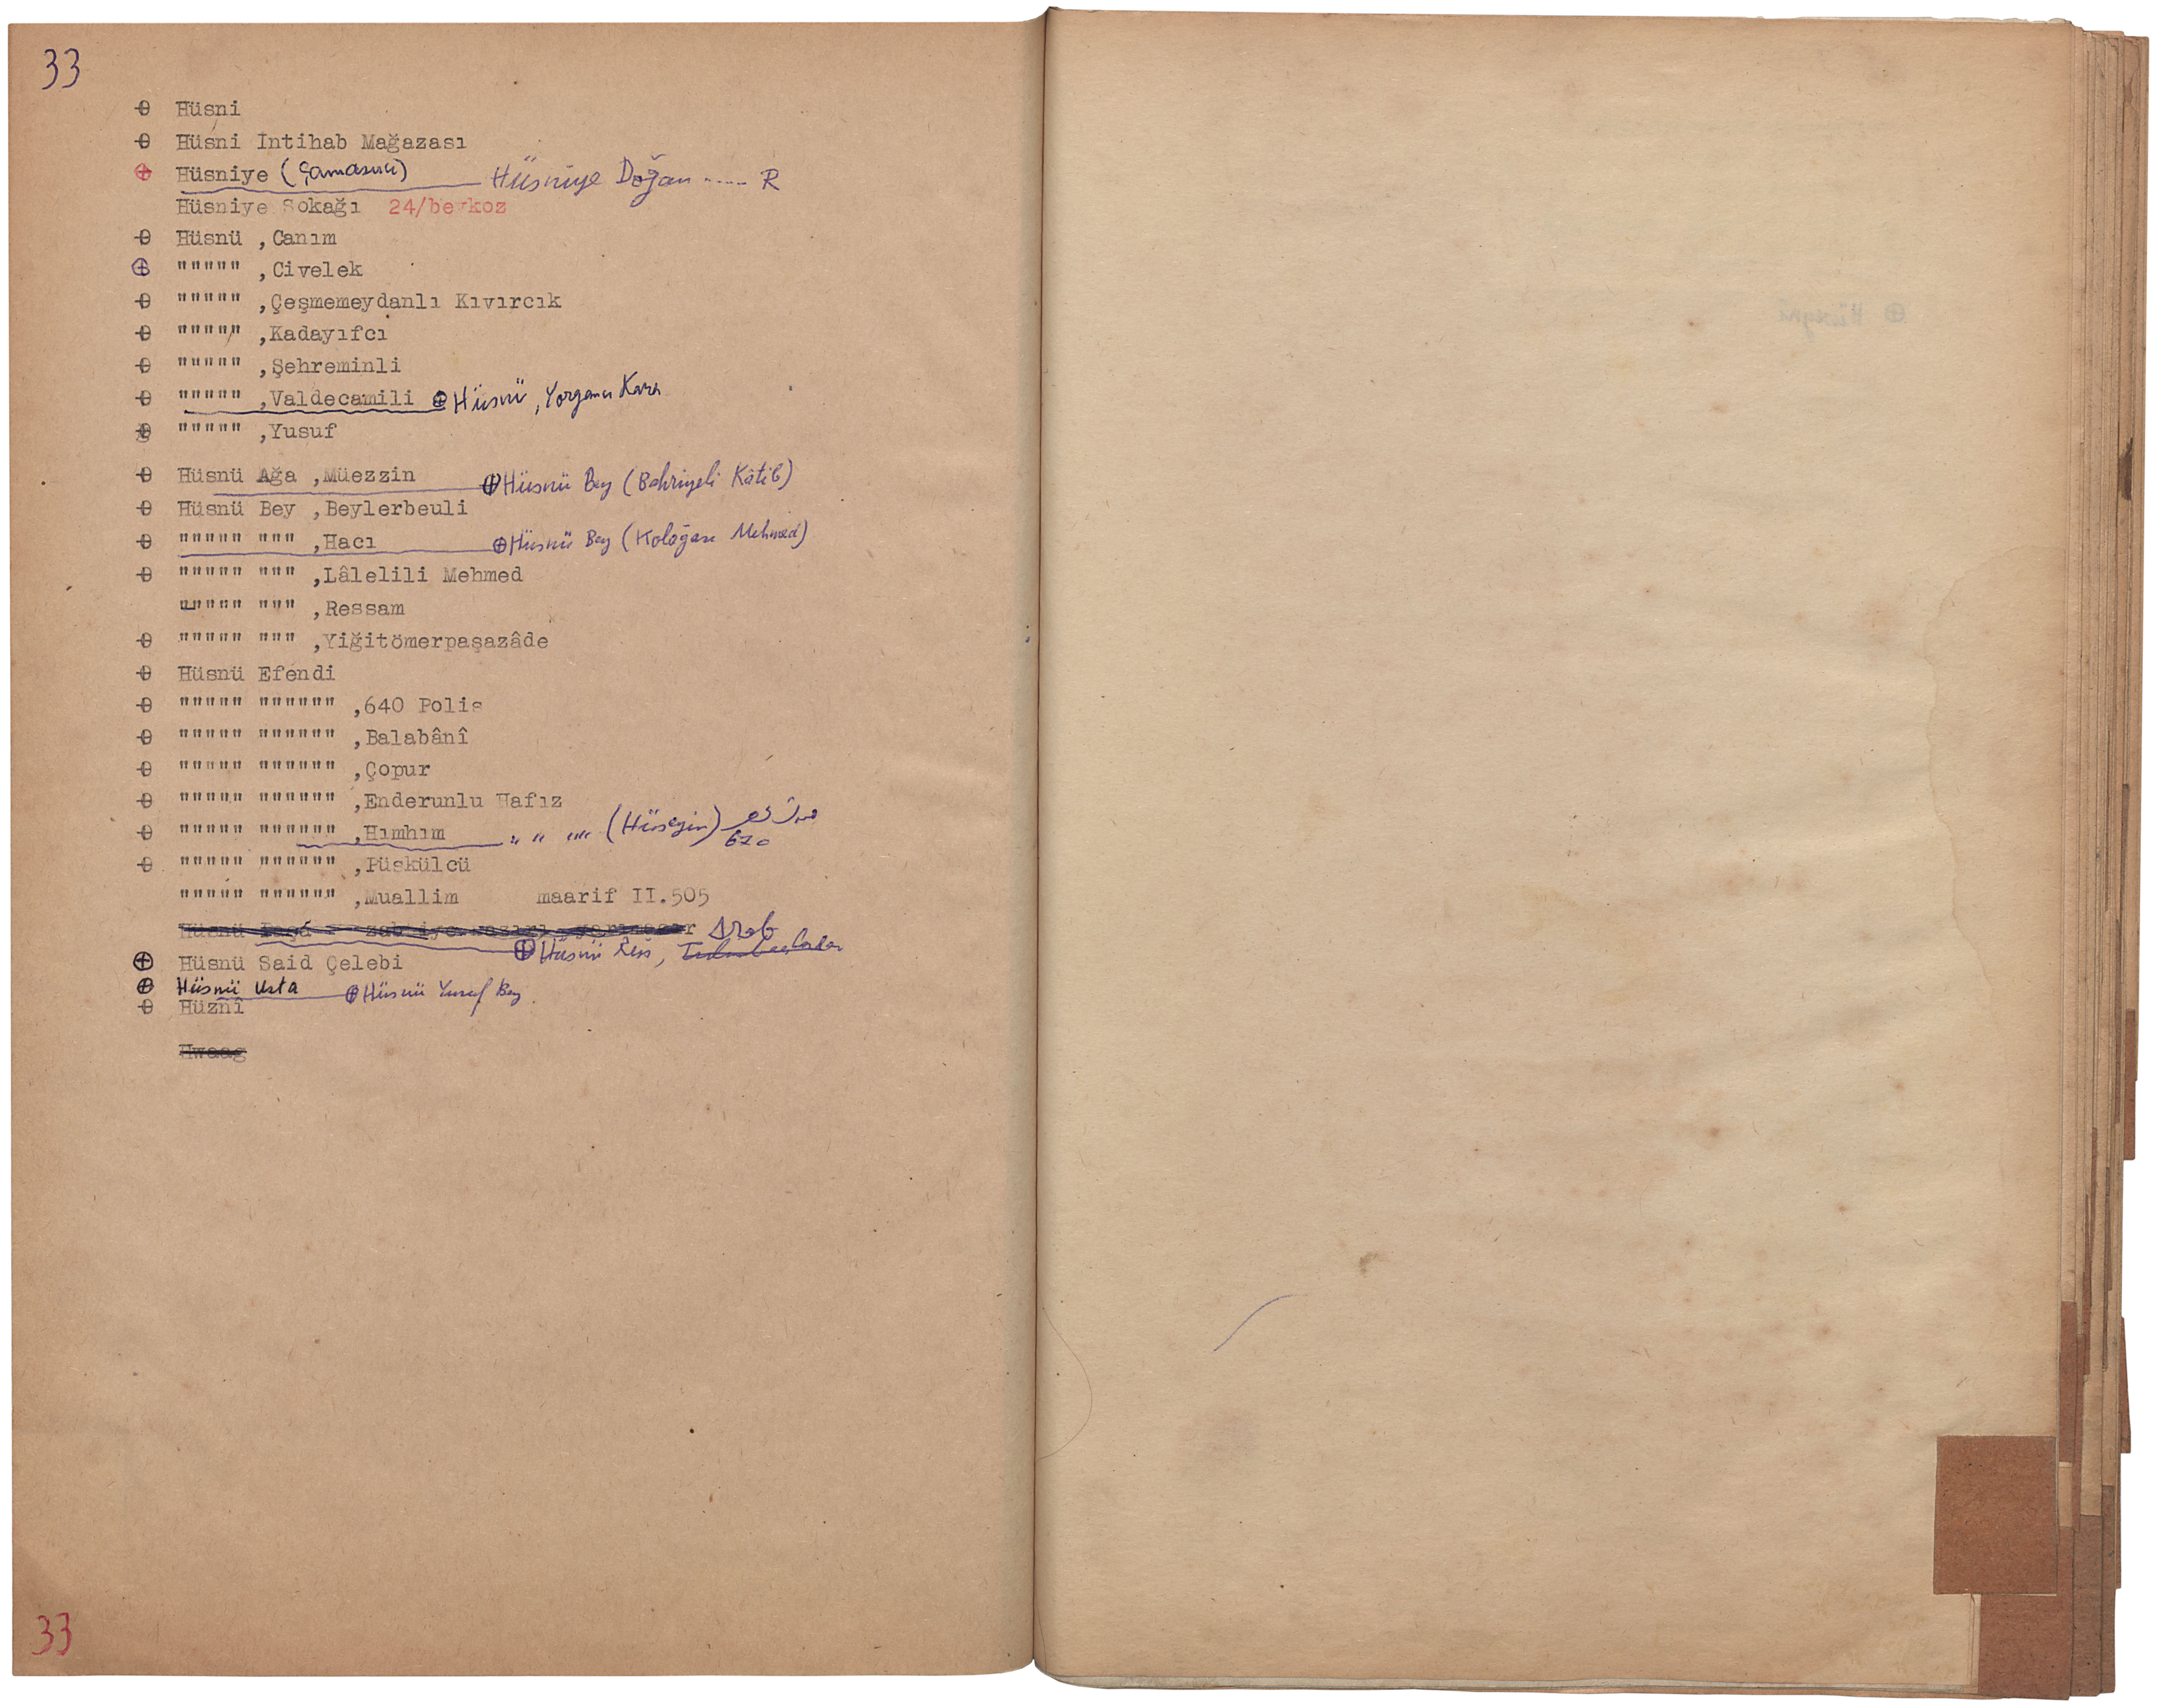 33
Hüsni
Hüsni İntihab Mağazası
Hüsniye (Çamaşırcı) Hüsniye Doğan ..... R
Hüsniye Sokağı 24/beykoz
Hüsnü ,Canım
""""" ,Civelek
""""" ,Çeşmemeydanlı Kıvırcık
""""" ,Kadayıfcı
""""" ,Şehreminli
""""" ,Valdecamili Hüsnü, Yorgancı Kara
""""" ,Yusuf
Hüsnü Ağa ,Müezzin Hüsnü Bey (Bahriyeli Kâtib)
Hüsnü Bey ,Beylerbeuli
""""" """ ,Hacı Hüsnü Bey (Kolağası Mehmed)
""""" """ ,Lâlelili Mehmed
""""" """ ,Ressam
""""" """ ,Yiğitömerpaşazâde
Hüsnü Efendi
""""" """""" ,640 Polis
""""" """""" ,Balabânî
""""" """""" ,Çopur
""""" """""" ,Enderunlu Hafız
""""" """""" ,Hımhım " " "" (Hüseyin) 670
""""" """""" ,Püskülcü
""""" """""" ,Muallim maarif II.505
Hüsnü Paşa Arab
Hüsnü Reis,
Hüsnü Said Çelebi
Hüsnü Usta Hüsnü Yusuf Bey
Hüznî
Hwaag
33